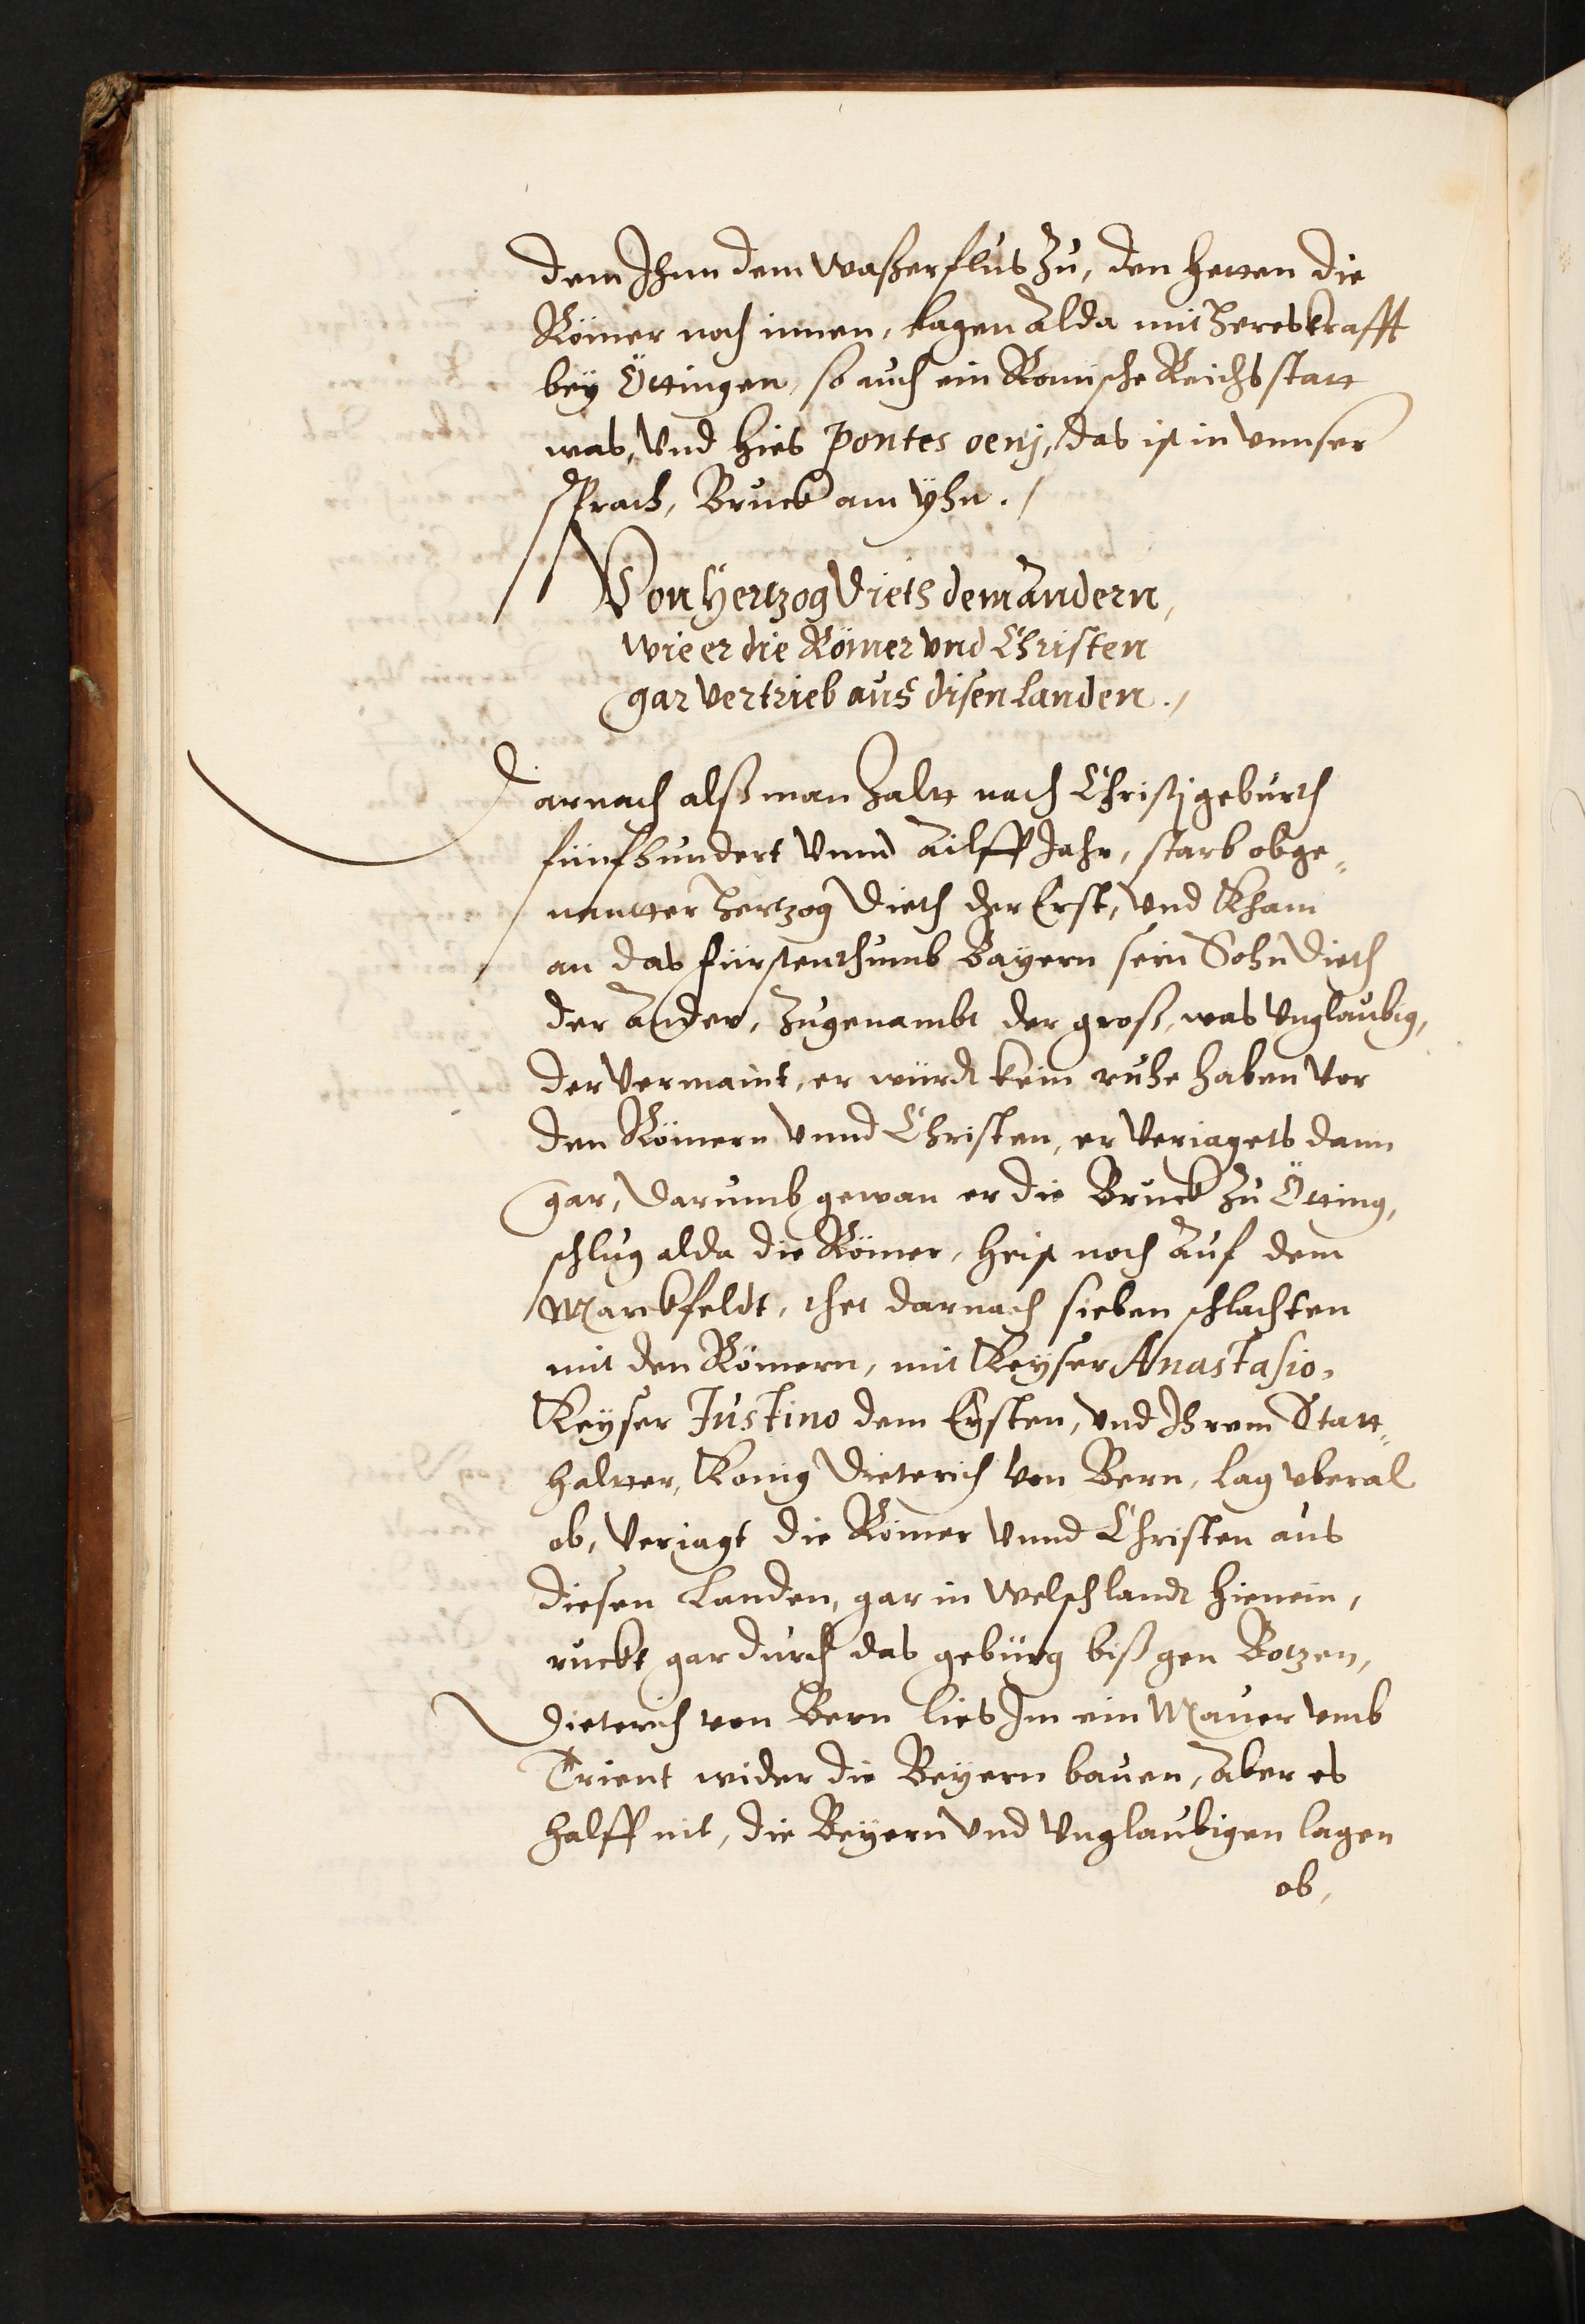 dem Ihnn dem waßerflus zu, den hetten die
Römer noch innen, lagen Alda mit hereskrafft
bey Öttingen, so auch ein Romische Reichsstatt
was, Vnd hies Pontes oenj, das ist in vnnser
sprach, Bruck am ÿhn.
Von Hertzog Dieth dem Andern,
wie er die Römer vnd Christen
gar Vertrieb aus disen Landen.
Darnach alß man Zaltt nach Christj geburth
fünfhundert Vnnd Ailff Jahr, starb obge„
nantter hertzog Dieth der Erst, Vnd Kham
an das fürstenthumb Bayern sein Sohn Dieth
der Ander, Zugenambt der groß, was Vnglaubig,
der Vermaint, er würdt kein ruhe haben Vor
den Römern Vnnd Christen, er Veriagets dann
gar, Darumb gewan er die Bruck Zu Ötting,
schlug alda die Römer, heist noch Auf dem
Marckfeldt, thet darnach sieben schlachten
mit den Römern, mit Keyser Anastasio,
Keyser Justino dem Ersten, Vnd Ihrem Statt„
haltter, Konig Dieterich Von Bern, lag vberal
ob, Veriagt die Römer Vnnd Christen aus
diesen Landen, gar in Welschlandt hienein,
ruckt gar durch das gebürg biß gen Botzen,
Dieterich von Bern lies Im ein Mauer vmb
Trient wider die Beyern bauen, Aber es
halff nit, die Beyern Vnd Vnglaubigen lagen
ob,